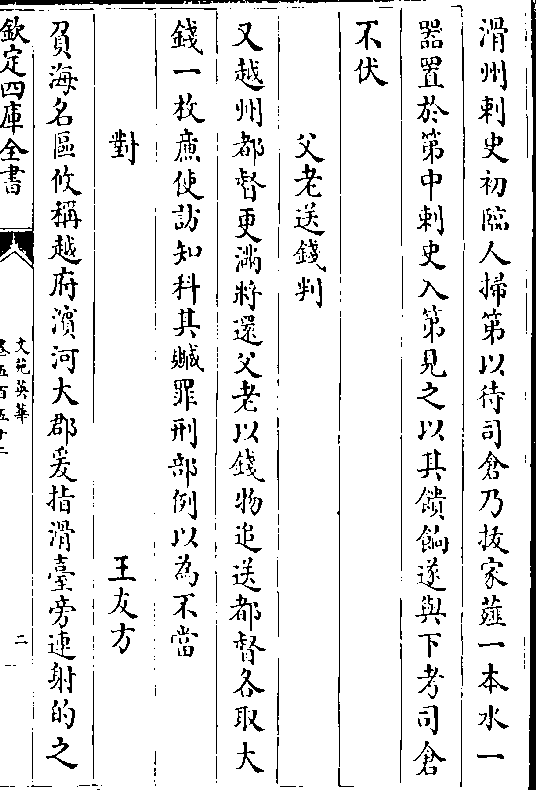 滑州刺史初臨人掃第以待司倉乃拔家薤一本水一
器置於第中刺史入第見之以其饋餉遂與下考司倉
不伏
父老送錢判
又越州都督更滿將還父老以錢物追送都督各取大
錢一枚廉使訪知科其贓罪刑部例以為不當
對 王友方
負海名區攸稱越府濱河大郡爰指滑臺旁連射的之
欽定四庫全書
文苑英華
卷五百五十二
二